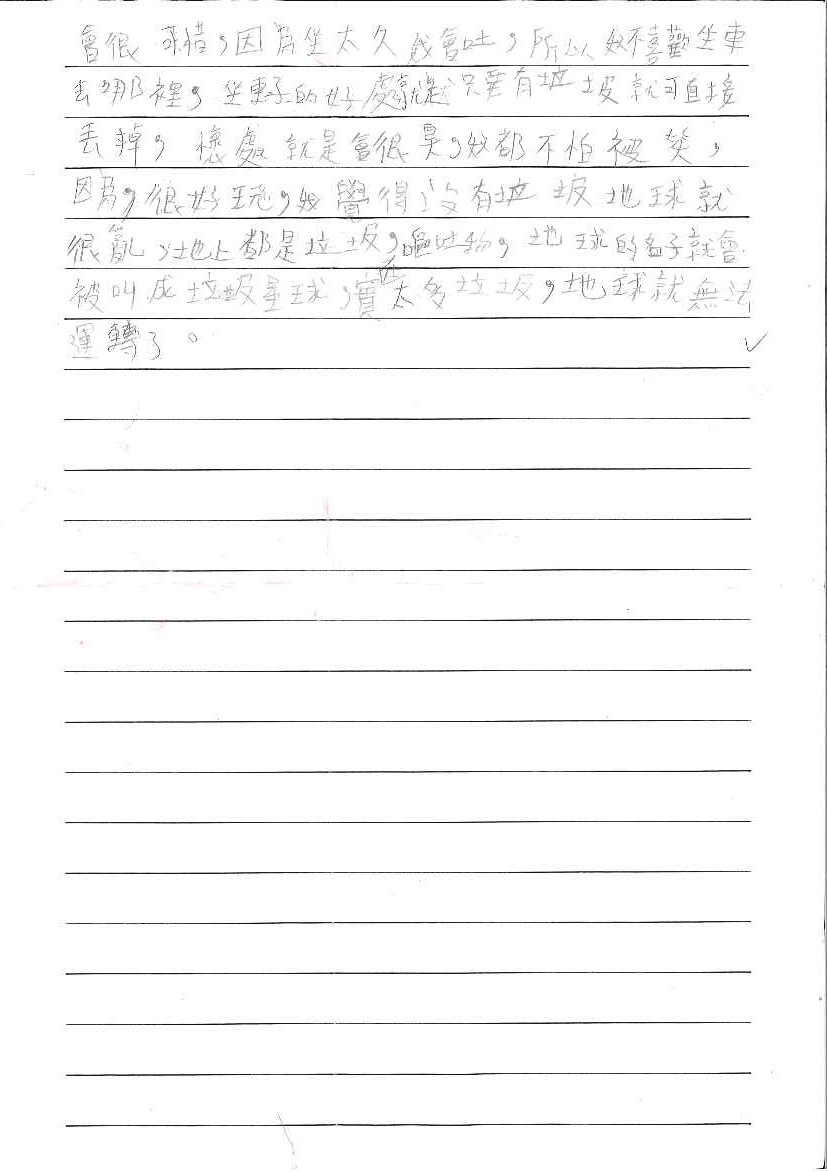 會很 ，因為坐太久 會吐，所以 不喜歡坐車
去哪裡，坐車子的好處就是只要有垃圾就可直接
丟掉，壞處就是會很臭，奴都不怕被笑，
因為，很好玩，奴覺得沒有垃圾地球就
很亂，地上都是垃圾，嘔吐物，地球的名子就會
被叫成垃圾星球，實在太多垃圾，地球就無法
運轉了。